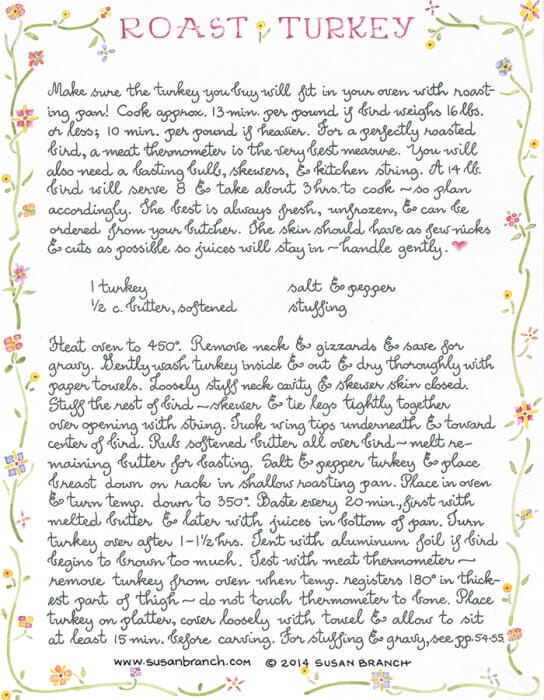 ROAST TURKEY
Make sure the turkey you buy will fit in your oven with roast-
ing pan! Cook approx. 13 min. per pound if bird weighs 16 lbs.
or less; 10 min. per pound if heavier. For a perfectly roasted
bird, a meat thermometer is the very best measure. You will
also need a basting bulb, skewers, & kitchen string. A 14 lb.
bird will serve 8 & take about 3 hrs. to cook ~ so plan
accordingly. The best is always fresh, unfrozen, & can be
ordered from your butcher. The skin should have as few nicks
& cuts as possible so juices will stay in ~ handle gently.
1 turkey salt & pepper
½ c. butter, softened stuffing
Heat oven to 450°. Remove neck & gizzards & save for
gravy. Gently wash turkey inside & out & dry thoroughly with
paper towels. Loosely stuff neck cavity & skewer skin closed.
Stuff the rest of bird ~ skewer & tie legs tightly together
over opening with string. Tuck wing tips underneath & toward
center of bird. Rub softened butter all over bird ~ melt re-
maining butter for basting. Salt & pepper turkey & place
breast down on rack in shallow roasting pan. Place in oven
& turn temp. down to 350°. Baste every 20 min., first with
melted butter & later with juices in bottom of pan. Turn
turkey over after 1-1½ hrs. Tent with aluminum foil if bird
begins to brown too much. Test with meat thermometer ~
remove turkey from oven when temp. registers 180° in thick-
est part of thigh ~ do not touch thermometer to bone. Place
turkey on platter, cover loosely with towel & allow to sit
at least 15 min. before carving. For stuffing & gravy, see pp. 54-55.
www.susanbranch.com © 2014 SUSAN BRANCH